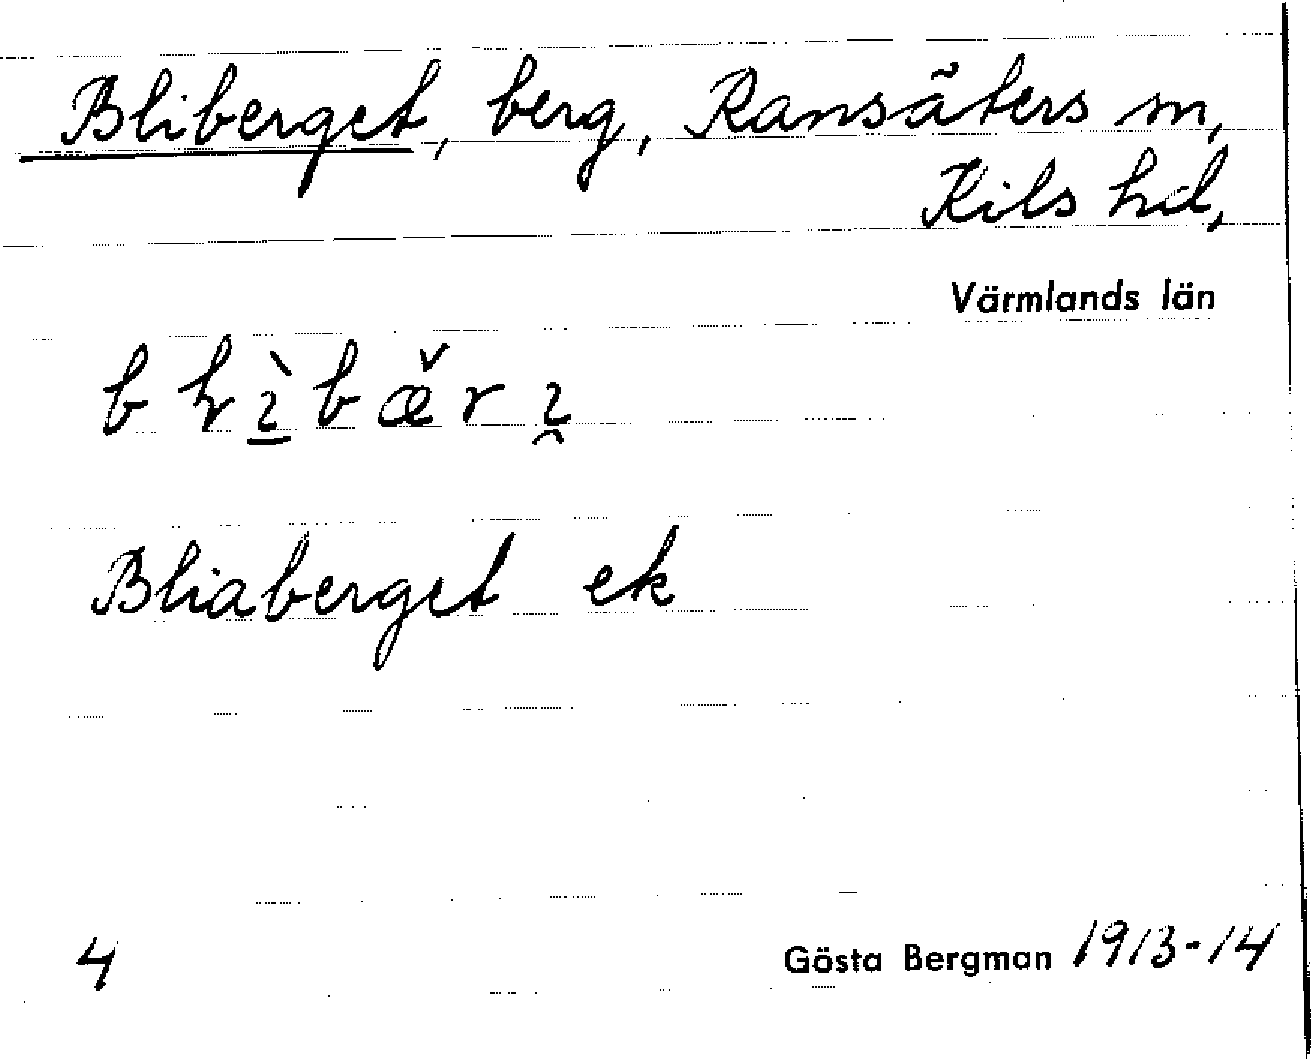 Bliberget, berg, Ransäters sn,
Kils hd,
Värmlands län
Bliaberget ek
4
Gösta Bergman 1913-14